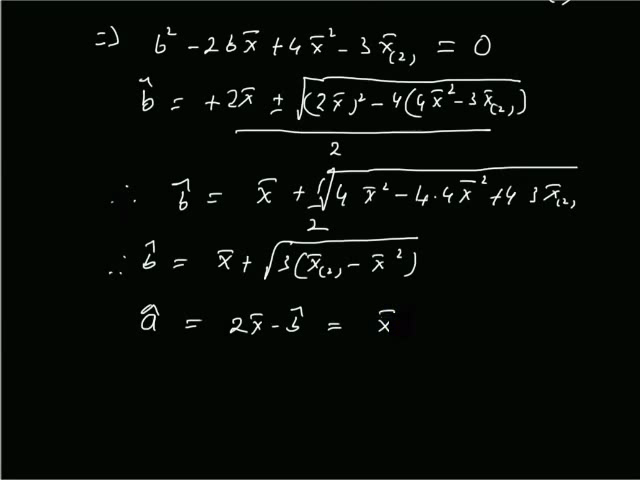 ⇒ b² − 2bx̄ + 4x̄² − 3x̄₍₂₎ = 0
b̂ = +2x̄ ± √((2x̄)² − 4(4x̄² − 3x̄₍₂₎))
2
∴ b̂ = x̄ + 1/2 √(4 x̄² − 4·4x̄² + 4 3x̄₍₂₎
∴ b̂ = x̄ + √(3(x̄₍₂₎ − x̄²))
â = 2x̄ − b̂ = x̄